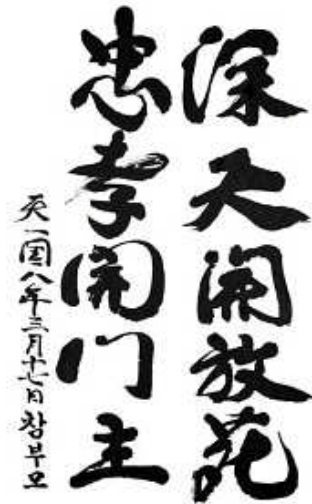 深天開放苑
忠孝開門主
天一国八年三月十七日참부모